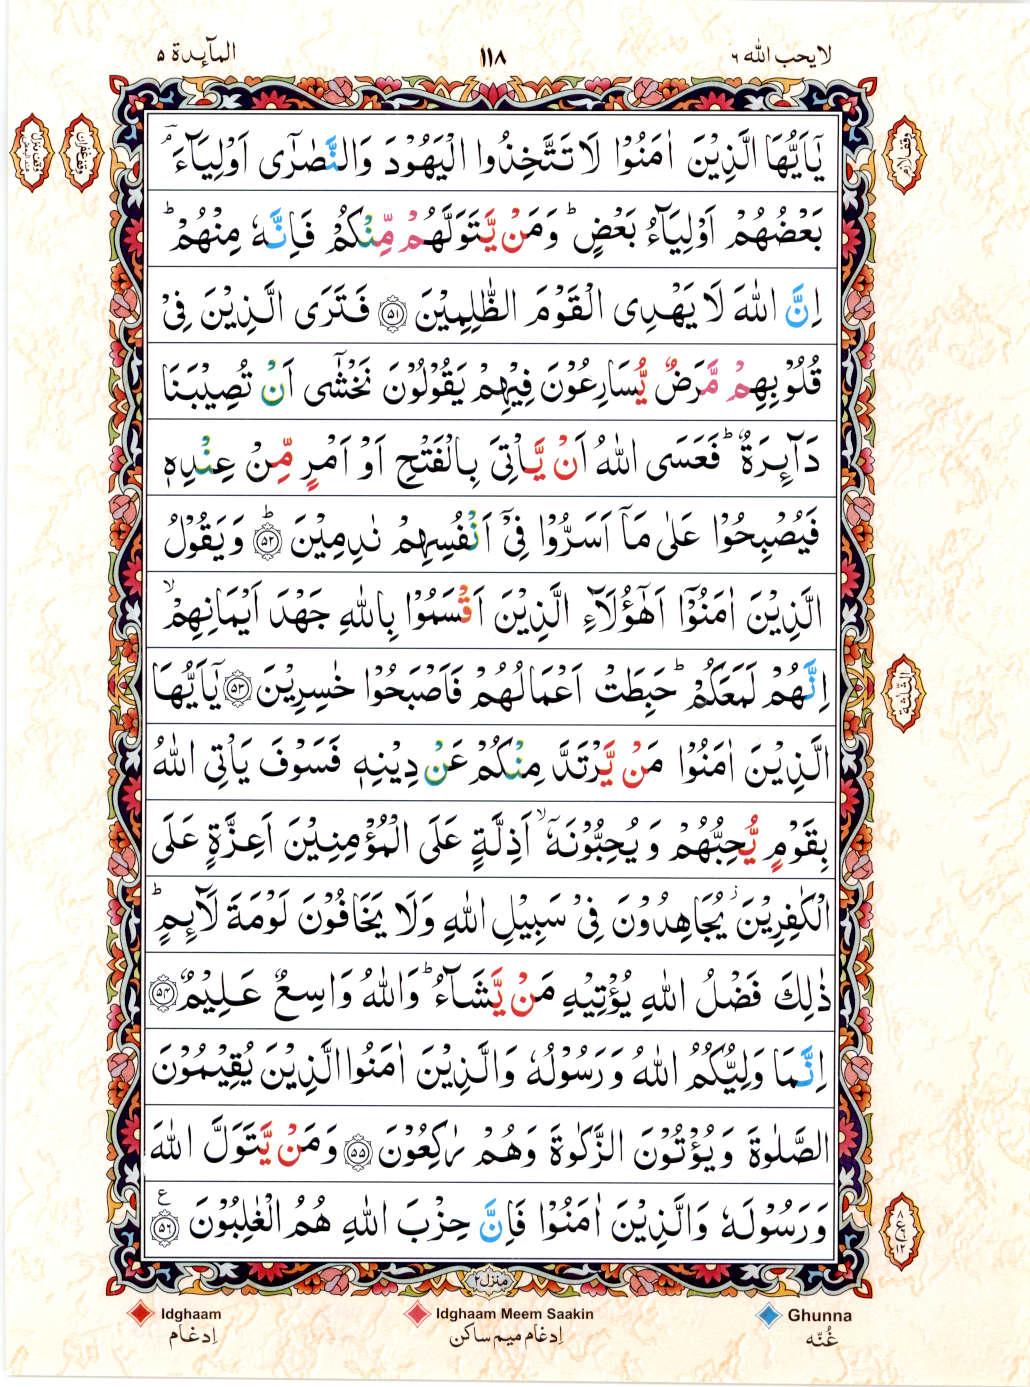 لا يحب الله ٦
١١٨
المآىِٕدة ٥
يٰۤاَيُّهَا الَّذِيْنَ اٰمَنُوْا لَا تَتَّخِذُوا الْيَهُوْدَ وَالنَّصٰرٰۤى اَوْلِيَآءَ ۘؔ
بَعْضُهُمْ اَوْلِيَآءُ بَعْضٍ ؕ وَمَنْ يَّتَوَلَّهُمْ مِّنْكُمْ فَاِنَّهٗ مِنْهُمْ ؕ
اِنَّ اللّٰهَ لَا يَهْدِى الْقَوْمَ الظّٰلِمِيْنَ ۝٥١ فَتَرَى الَّذِيْنَ فِىْ
قُلُوْبِهِمْ مَّرَضٌ يُّسَارِعُوْنَ فِيْهِمْ يَقُوْلُوْنَ نَخْشٰٓى اَنْ تُصِيْبَنَا
دَآىِٕرَةٌ ؕ فَعَسَى اللّٰهُ اَنْ يَّاْتِىَ بِالْفَتْحِ اَوْ اَمْرٍ مِّنْ عِنْدِهٖ
فَيُصْبِحُوْا عَلٰى مَاۤ اَسَرُّوْا فِىْۤ اَنْفُسِهِمْ نٰدِمِيْنَ ؕ۝٥٢ وَيَقُوْلُ
الَّذِيْنَ اٰمَنُوْۤا اَهٰۤؤُلَآءِ الَّذِيْنَ اَقْسَمُوْا بِاللّٰهِ جَهْدَ اَيْمَانِهِمْ ۙ
اِنَّهُمْ لَمَعَكُمْ ؕ حَبِطَتْ اَعْمَالُهُمْ فَاَصْبَحُوْا خٰسِرِيْنَ ۝٥٣ يٰۤاَيُّهَا
الَّذِيْنَ اٰمَنُوْا مَنْ يَّرْتَدَّ مِنْكُمْ عَنْ دِيْنِهٖ فَسَوْفَ يَاْتِى اللّٰهُ
بِقَوْمٍ يُّحِبُّهُمْ وَيُحِبُّوْنَهٗۤ ۙ اَذِلَّةٍ عَلَى الْمُؤْمِنِيْنَ اَعِزَّةٍ عَلَى
الْكٰفِرِيْنَ ؗ يُجَاهِدُوْنَ فِىْ سَبِيْلِ اللّٰهِ وَلَا يَخَافُوْنَ لَوْمَةَ لَآىِٕمٍ ؕ
ذٰلِكَ فَضْلُ اللّٰهِ يُؤْتِيْهِ مَنْ يَّشَآءُ ؕ وَاللّٰهُ وَاسِعٌ عَلِيْمٌ ۝٥٤
اِنَّمَا وَلِيُّكُمُ اللّٰهُ وَرَسُوْلُهٗ وَالَّذِيْنَ اٰمَنُوا الَّذِيْنَ يُقِيْمُوْنَ
الصَّلٰوةَ وَيُؤْتُوْنَ الزَّكٰوةَ وَهُمْ رٰكِعُوْنَ ۝٥٥ وَمَنْ يَّتَوَلَّ اللّٰهَ
وَرَسُوْلَهٗ وَالَّذِيْنَ اٰمَنُوْا فَاِنَّ حِزْبَ اللّٰهِ هُمُ الْغٰلِبُوْنَ ۝٥٦ ع
وقف لازم
وقف غفران
الثلثة
ع
منزل ٢
Idghaam
اِدغام
Idghaam Meem Saakin
اِدغام میم ساکن
Ghunna
غُنّه